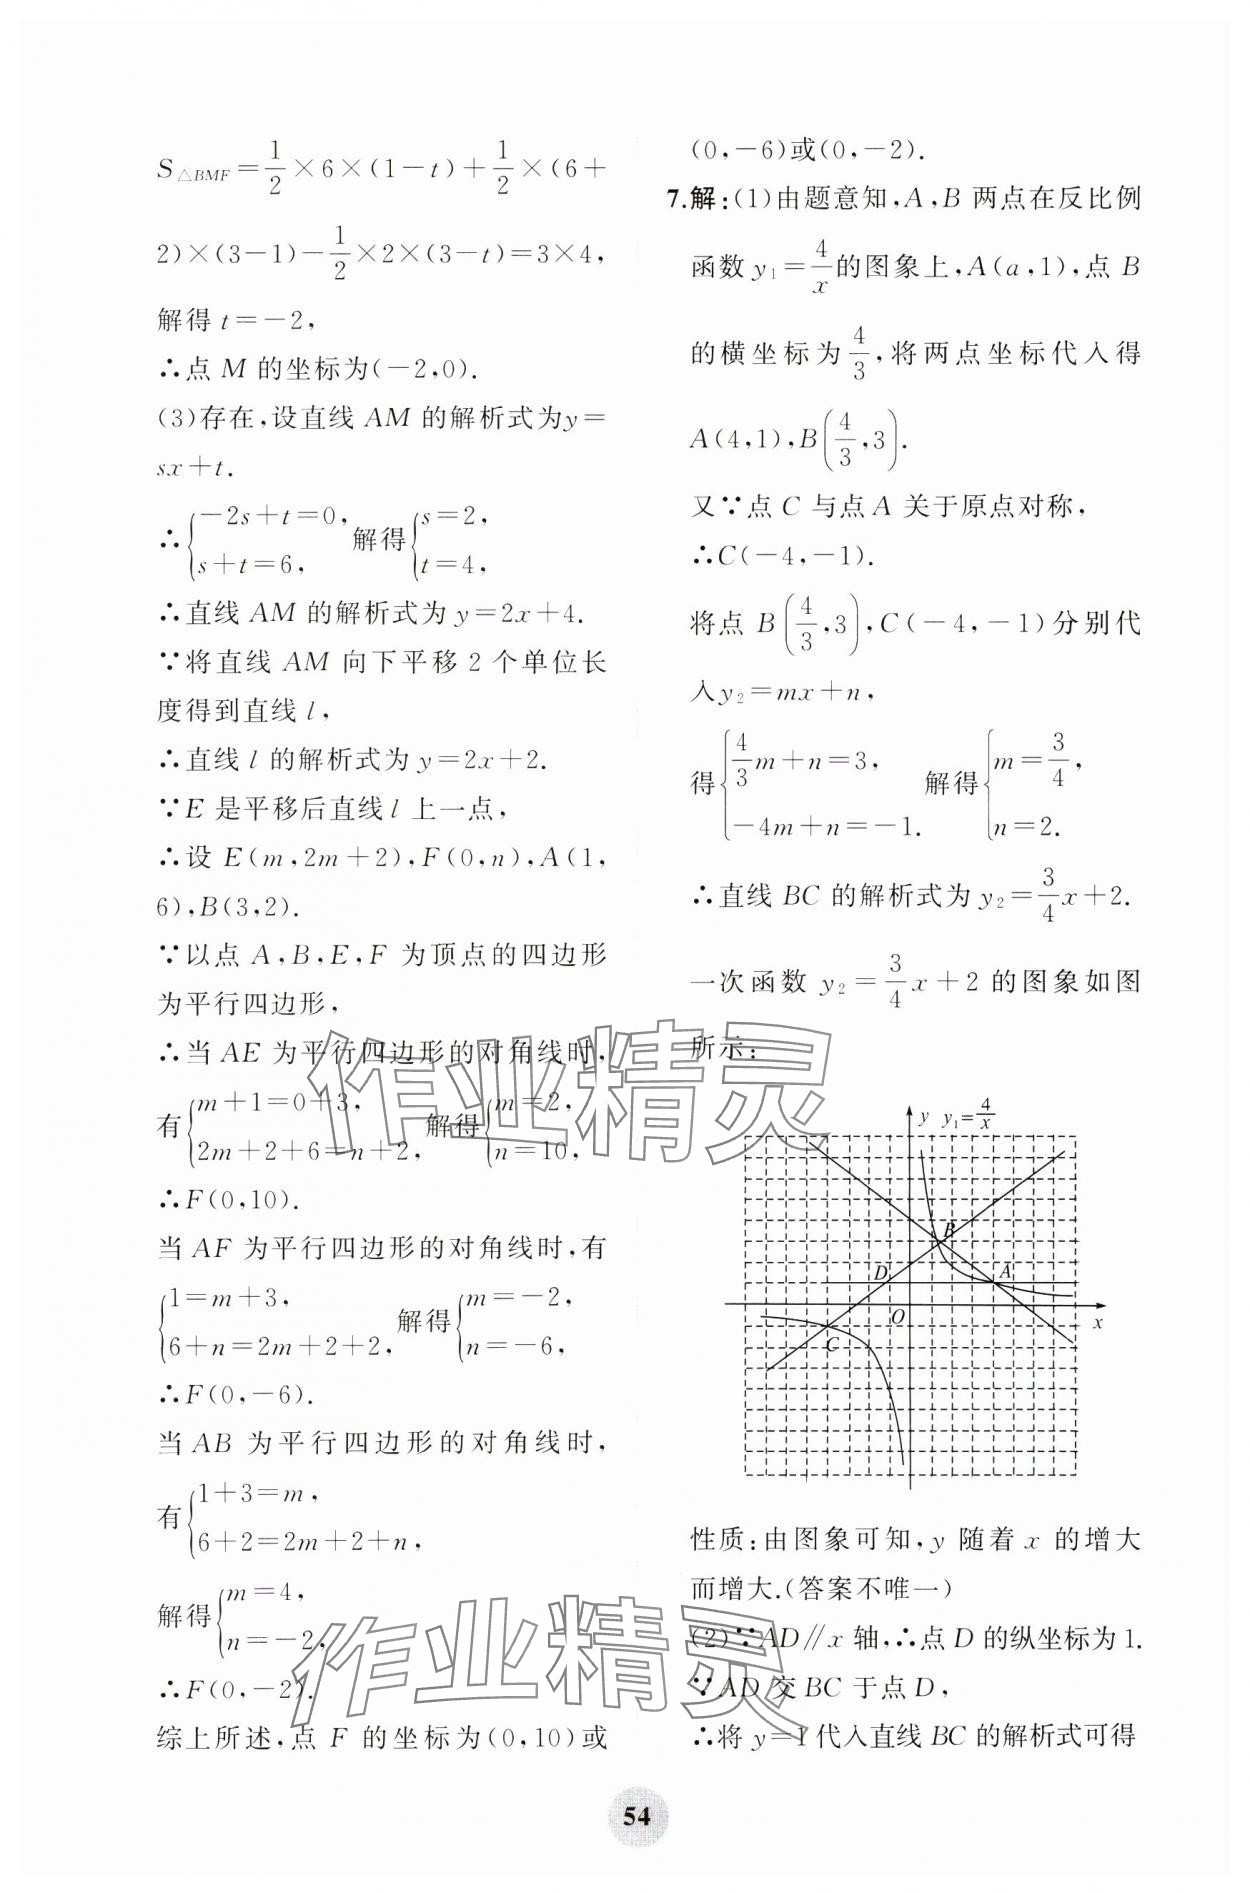 S△BMF=1/2×6×(1-t)+1/2×(6+
2)×(3-1)-1/2×2×(3-t)=3×4,
解得 t=-2,
∴点 M 的坐标为(-2,0).
(3)存在,设直线 AM 的解析式为y=
sx+t.
∴{-2s+t=0, s+t=6, 解得{s=2, t=4,
∴直线 AM 的解析式为 y=2x+4.
∵将直线 AM 向下平移 2 个单位长
度得到直线 l,
∴直线 l 的解析式为 y=2x+2.
∵E 是平移后直线 l 上一点,
∴设 E(m,2m+2),F(0,n),A(1,
6),B(3,2).
∵以点 A,B,E,F 为顶点的四边形
为平行四边形,
∴当 AE 为平行四边形的对角线时,
有{m+1=0+3, 2m+2+6=n+2, 解得{m=2, n=10,
∴F(0,10).
当 AF 为平行四边形的对角线时,有
{1=m+3, 6+n=2m+2+2, 解得{m=-2, n=-6,
∴F(0,-6).
当 AB 为平行四边形的对角线时,
有{1+3=m, 6+2=2m+2+n,
解得{m=4, n=-2,
∴F(0,-2).
综上所述,点 F 的坐标为(0,10)或
(0,-6)或(0,-2).
7.解:(1)由题意知,A,B 两点在反比例
函数 y₁=4/x的图象上,A(a,1),点 B
的横坐标为4/3,将两点坐标代入得
A(4,1),B(4/3,3).
又∵点 C 与点 A 关于原点对称,
∴C(-4,-1).
将点 B(4/3,3),C(-4,-1)分别代
入y₂=mx+n,
得{4/3m+n=3, -4m+n=-1. 解得{m=3/4, n=2.
∴直线 BC 的解析式为 y₂=3/4x+2.
一次函数 y₂=3/4x+2 的图象如图
所示:
y y₁=4/x
B
D A
O x
C
性质:由图象可知,y 随着 x 的增大
而增大.(答案不唯一)
(2)∵AD∥x 轴,∴点 D 的纵坐标为 1.
∵AD 交 BC 于点 D,
∴将 y=1代入直线 BC 的解析式可得
作业精灵
作业精灵
54